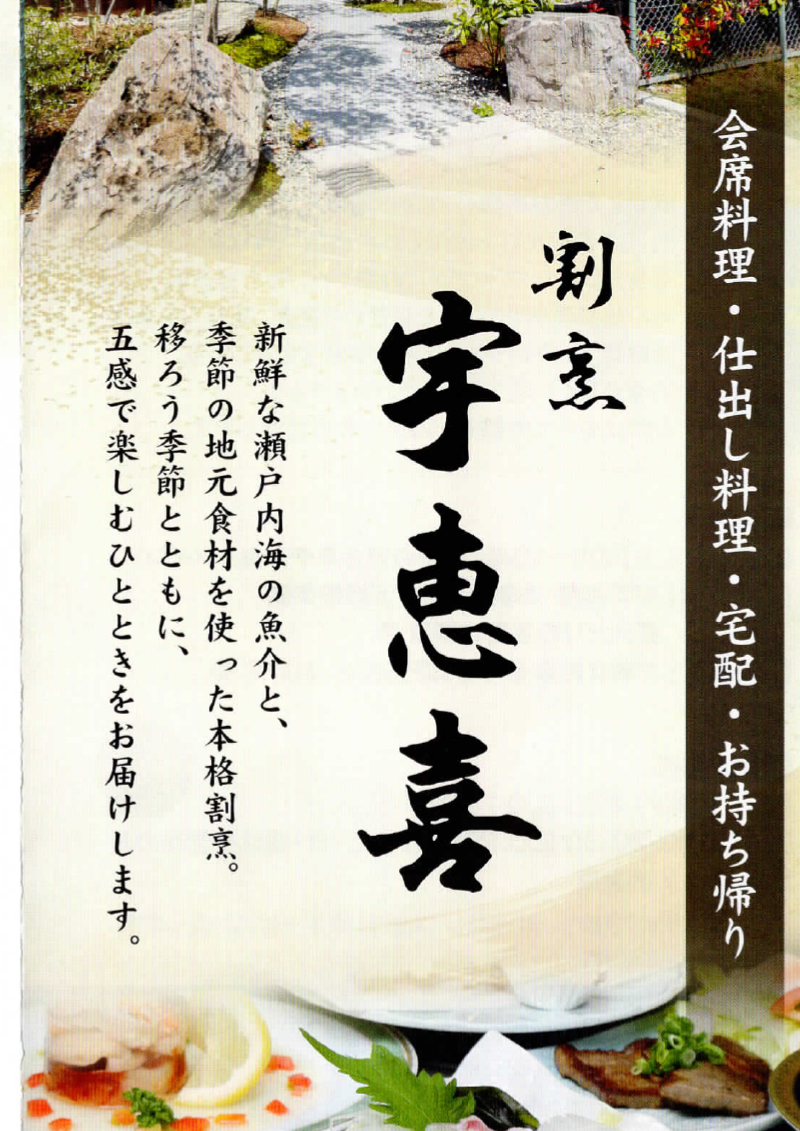 会席料理・仕出し料理・宅配・お持ち帰り
割烹
宇恵喜
新鮮な瀬戸内海の魚介と、
季節の地元食材を使った本格割烹。
移ろう季節とともに、
五感で楽しむひとときをお届けします。